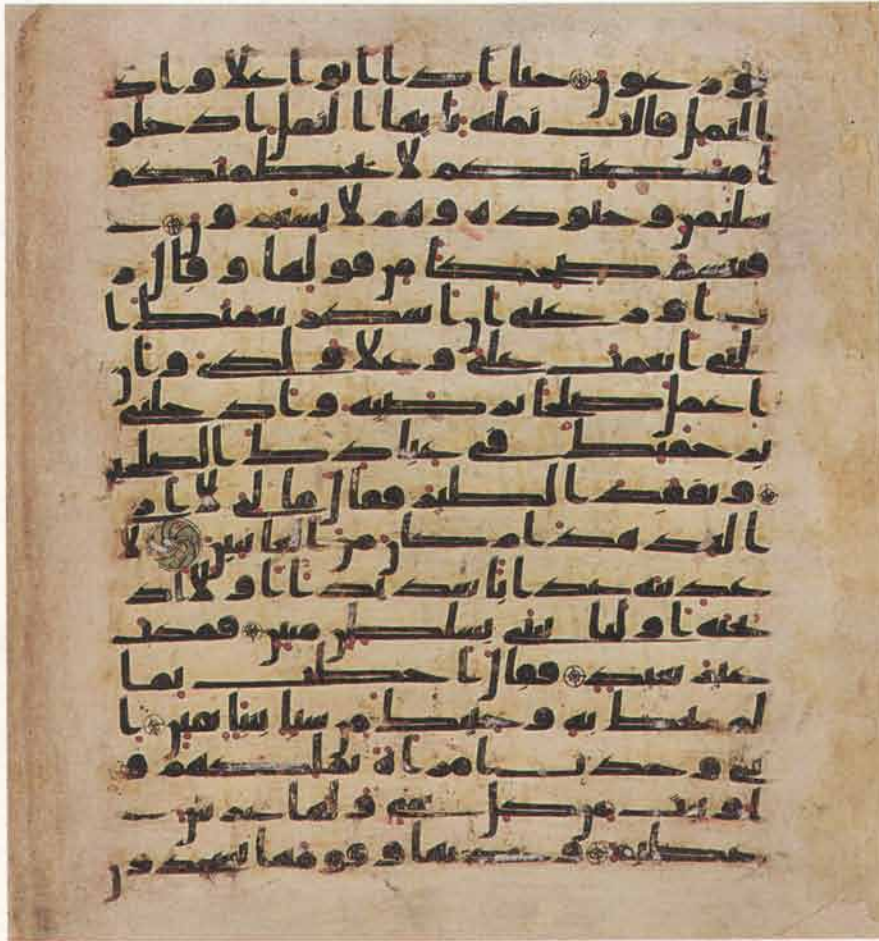 يوزعون حتا اذا اتوا علا واد
النمل قالت نمله يايها النمل ادخلو
ا مسكنكم لا يحطمنكم
سليمن وجنوده وهم لا يشعرون
فتبسم ضحكا من قولها وقال ر
ب اوزعني ان اشكر نعمتك ا
لتي انعمت علي وعلا ولدي وان
اعمل صلحا ترضيه وادخلني
برحمتك في عبادك الصلحين
وتفقد الطير فقال ما لي لا ارى
الهدهد ام كان من الغايبين لا
عذبنه عذابا شديدا او لااذ
بحنه او لياتيني بسلطن مبين فمكث
غير بعيد فقال احطت بما
لم تحط به وجيتك من سبا بنبا يقين ا
ني وجدت امراة تملكهم و
اوتيت من كل شي ولها عرش
عظيم وجدتها وقومها يسجدون